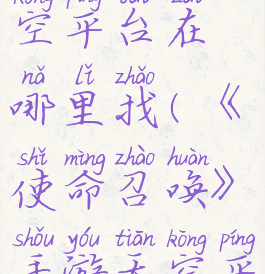 kōng píng tái zài
空平台在
nǎ lǐ zhǎo
哪里找(《
shǐ mìng zhào huàn
使命召唤》
shǒu yóu tiān kōng píng
手游天空平